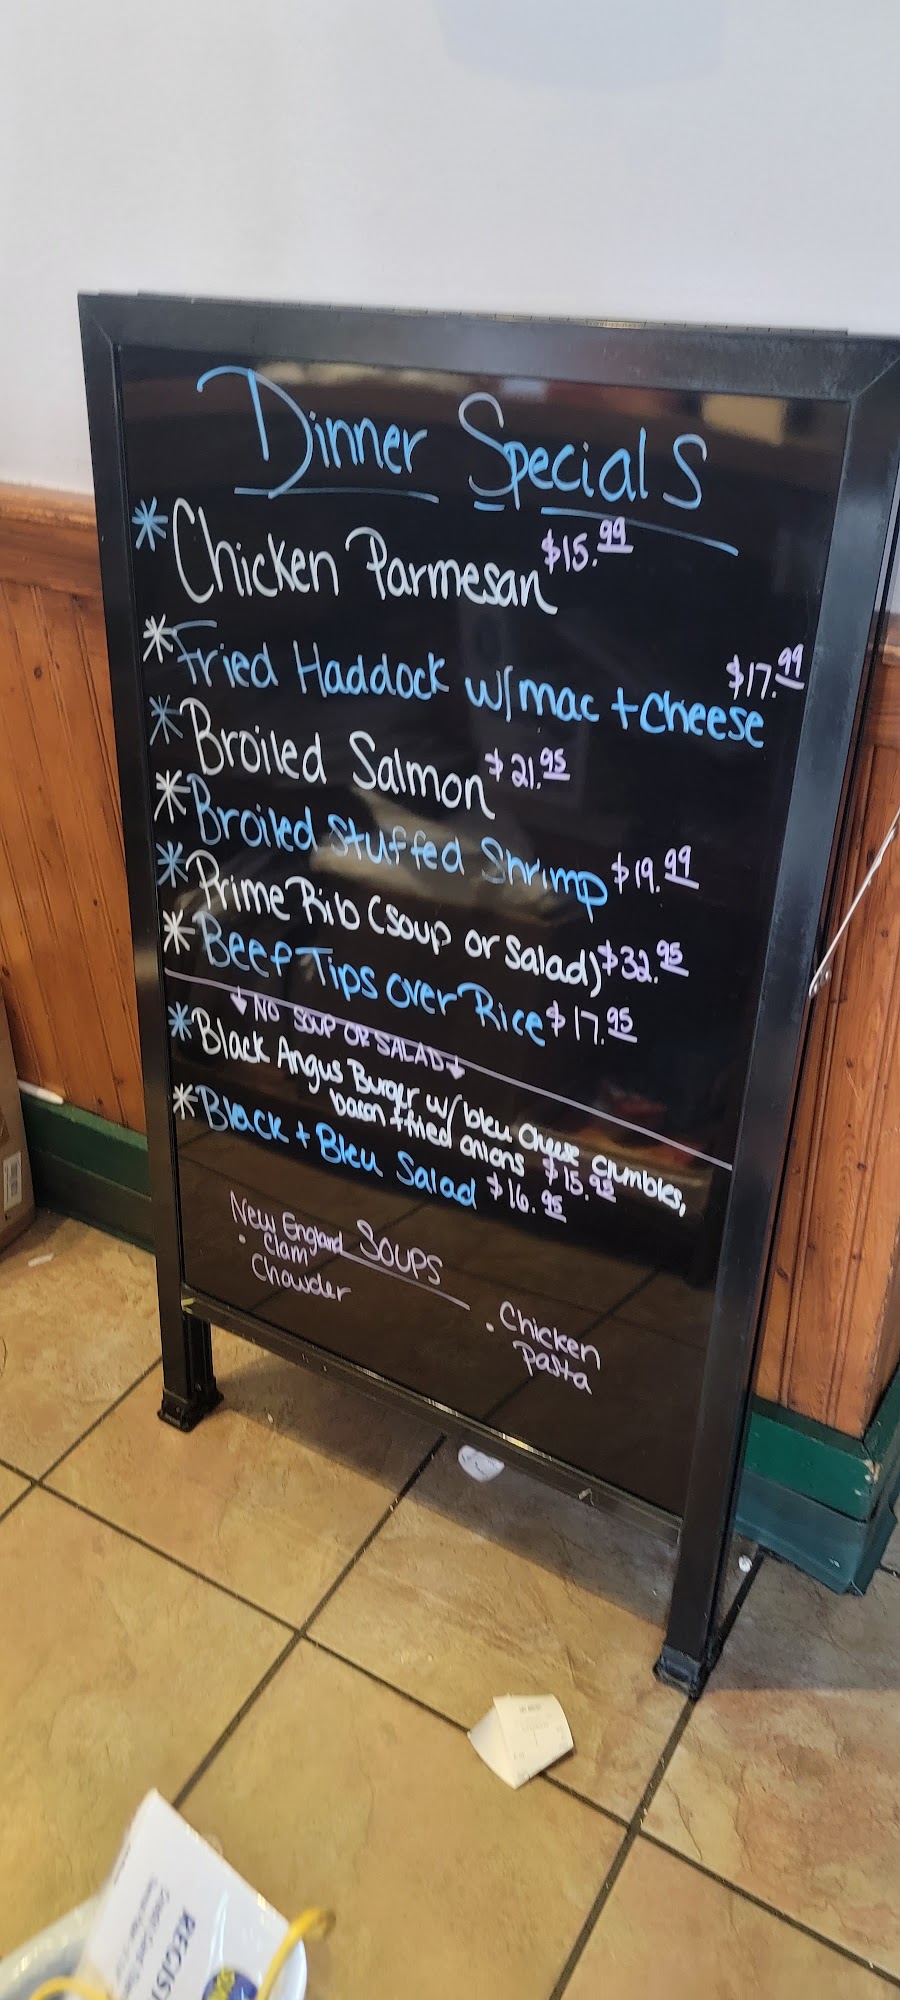 Dinner Specials
* Chicken Parmesan $15.99
* Fried Haddock w/ mac + Cheese $17.99
* Broiled Salmon $21.95
* Broiled Stuffed Shrimp $19.99
* Prime Rib (soup or Salad) $32.95
* Beef Tips over Rice $17.95
↓ NO SOUP OR SALAD ↓
* Black Angus Burger w/ bleu Cheese crumbles,
bacon + fried onions $15.95
* Black + Bleu Salad $16.95
SOUPS
• New England
Clam
Chowder
• Chicken
Pasta
REGIST